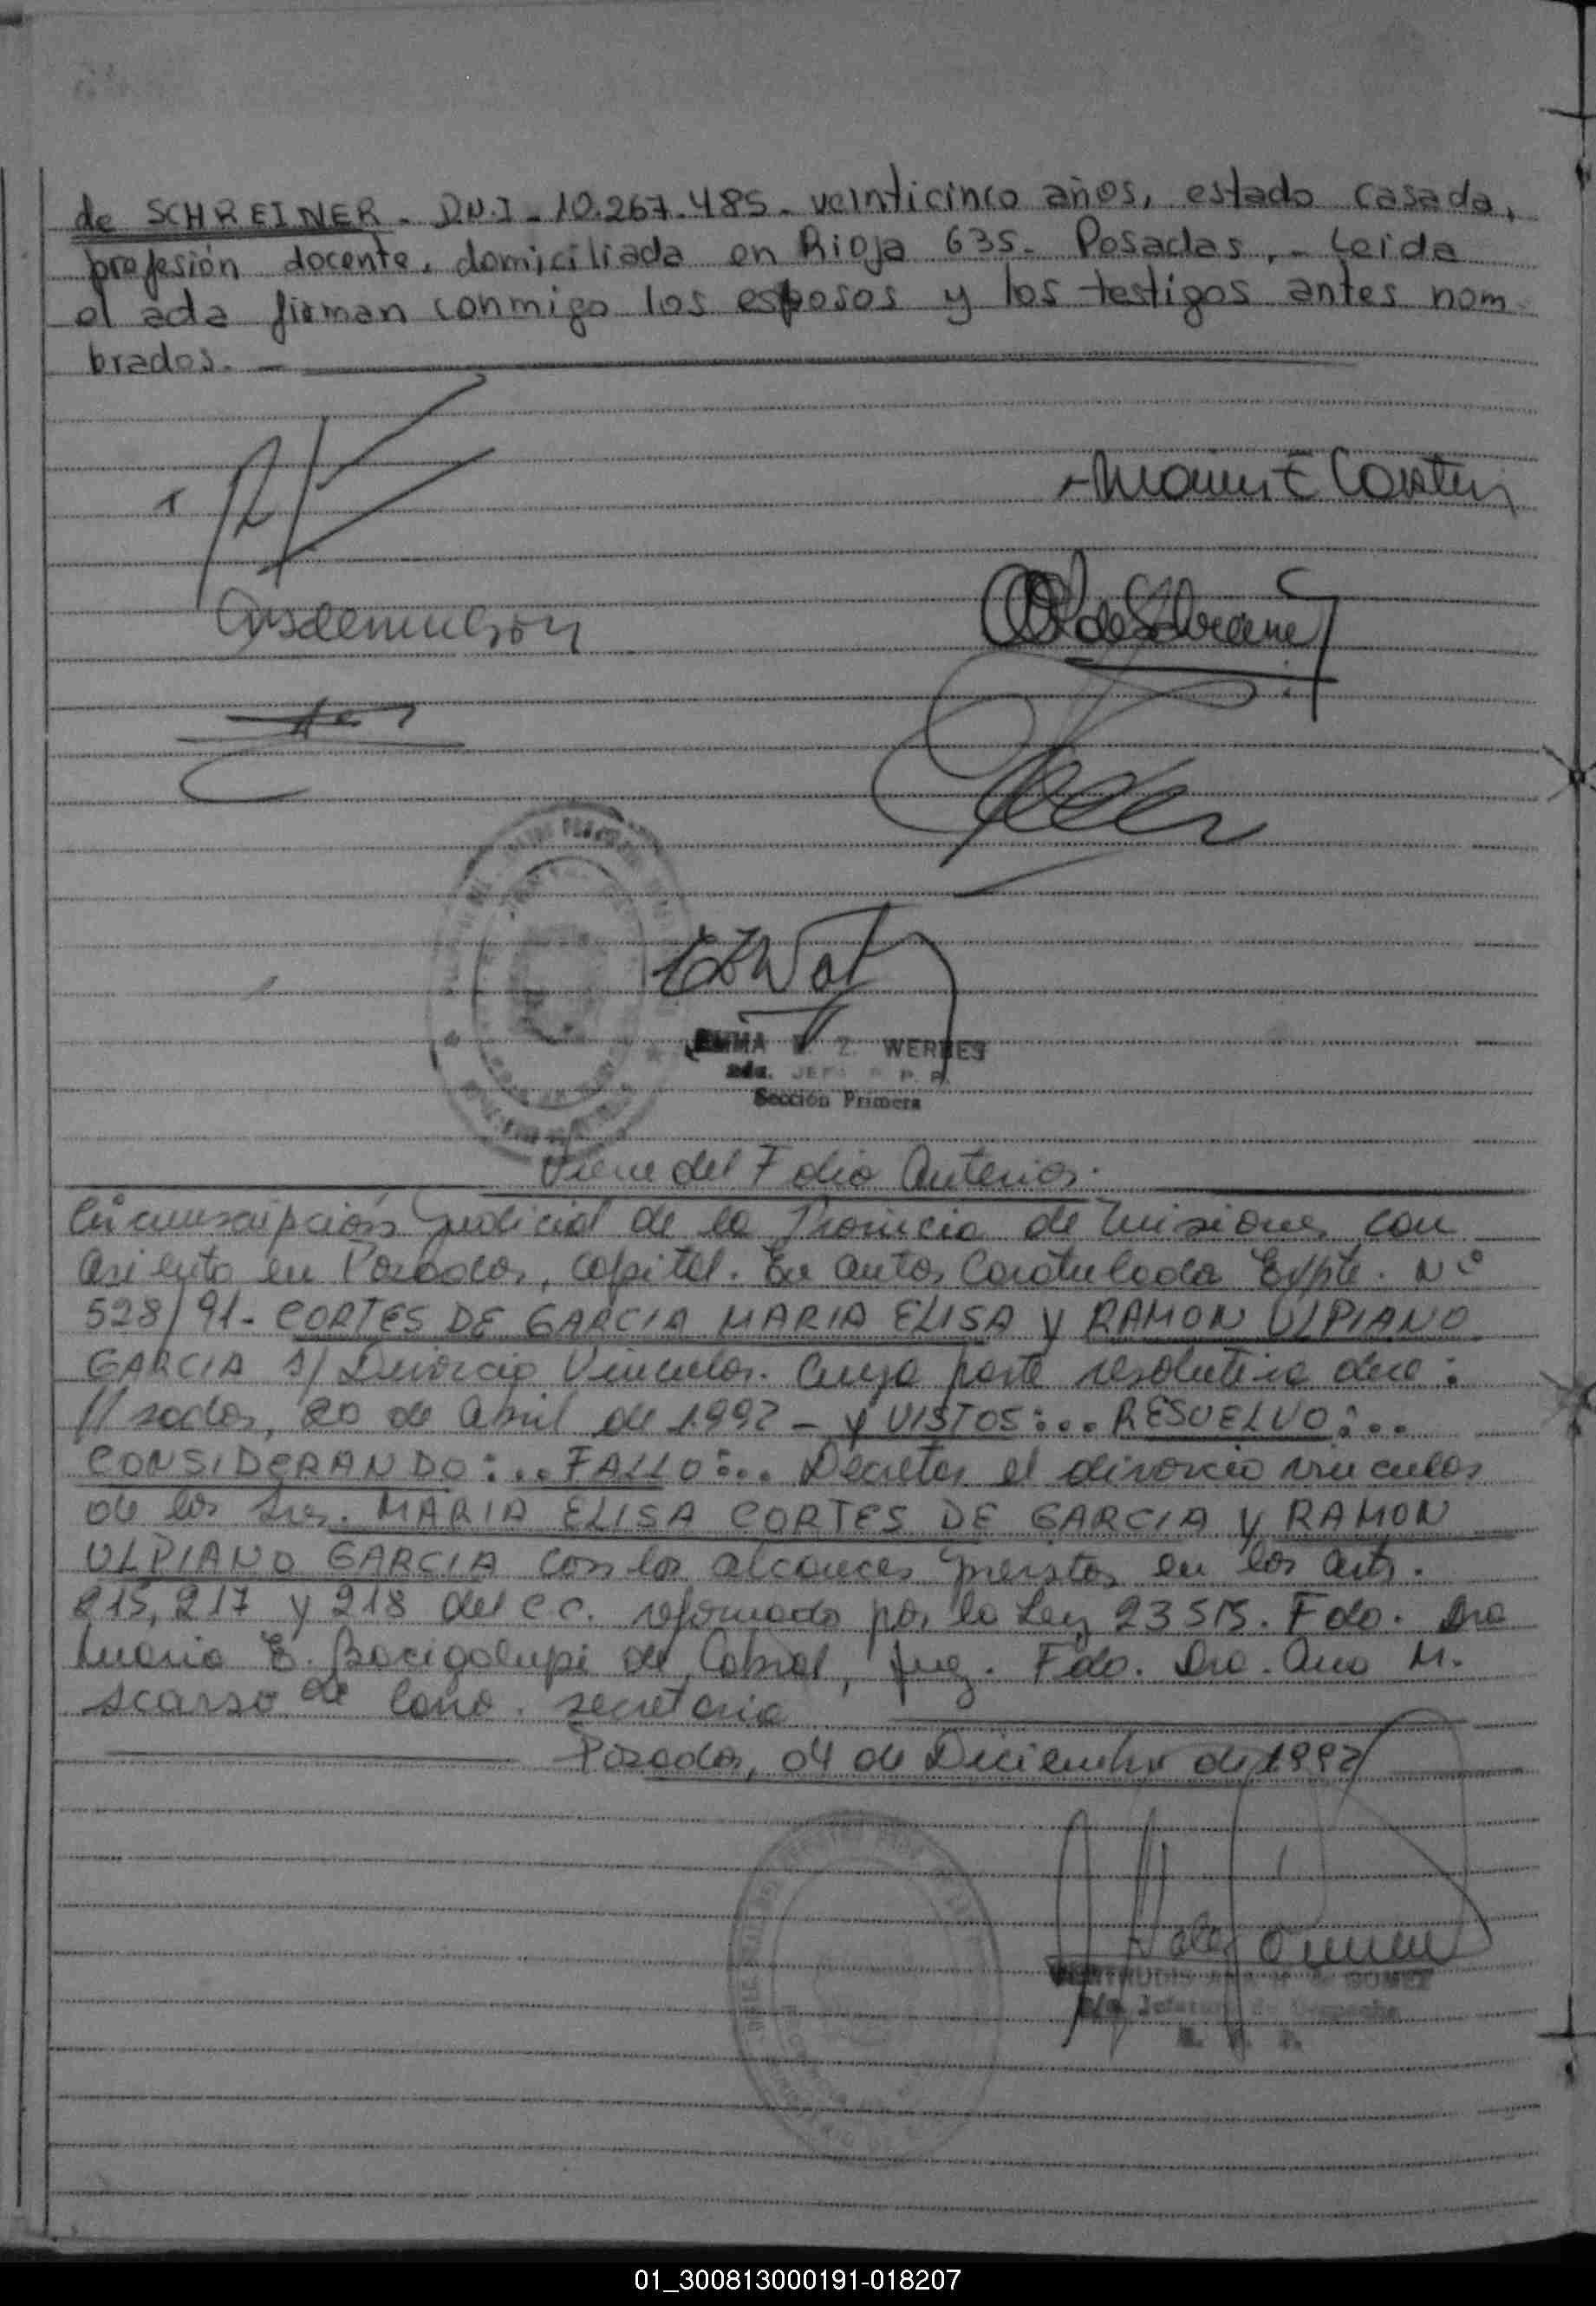 de SCHREINER. D.N.I. 10.267.485. veinticinco años, estado casada,
profesión docente, domiciliada en Rioja 635. Posadas,. Leida
el acta firman conmigo los esposos y los testigos antes nom
brados.
WERNES
Sección Primera
Viene del Folio Anterior.
Circunscripción Judicial de la Provincia de Misiones con
asiento en Posadas, capital. En autos Caratulada Expte. Nº
528/91- CORTES DE GARCIA MARIA ELISA y RAMON ULPIANO
GARCIA s/ Divorcio Vincular. Cuya parte resolutiva dice:
//sadas, 20 de abril de 1992 - y VISTOS:... RESUELVO:...
CONSIDERANDO:... FALLO:... Decretar el divorcio vincular
de los Sres. MARIA ELISA CORTES DE GARCIA y RAMON
ULPIANO GARCIA con los alcances previstos en los arts.
215, 217 y 218 del C.C. reformado por la Ley 23515. Fdo. Dra
Maria E. Bacigalupi de Cabral, Juez. Fdo. Dra. Ana M.
Scarso de secretaria
Posadas, 04 de Diciembre de 1992
GOMEZ
01_300813000191-018207